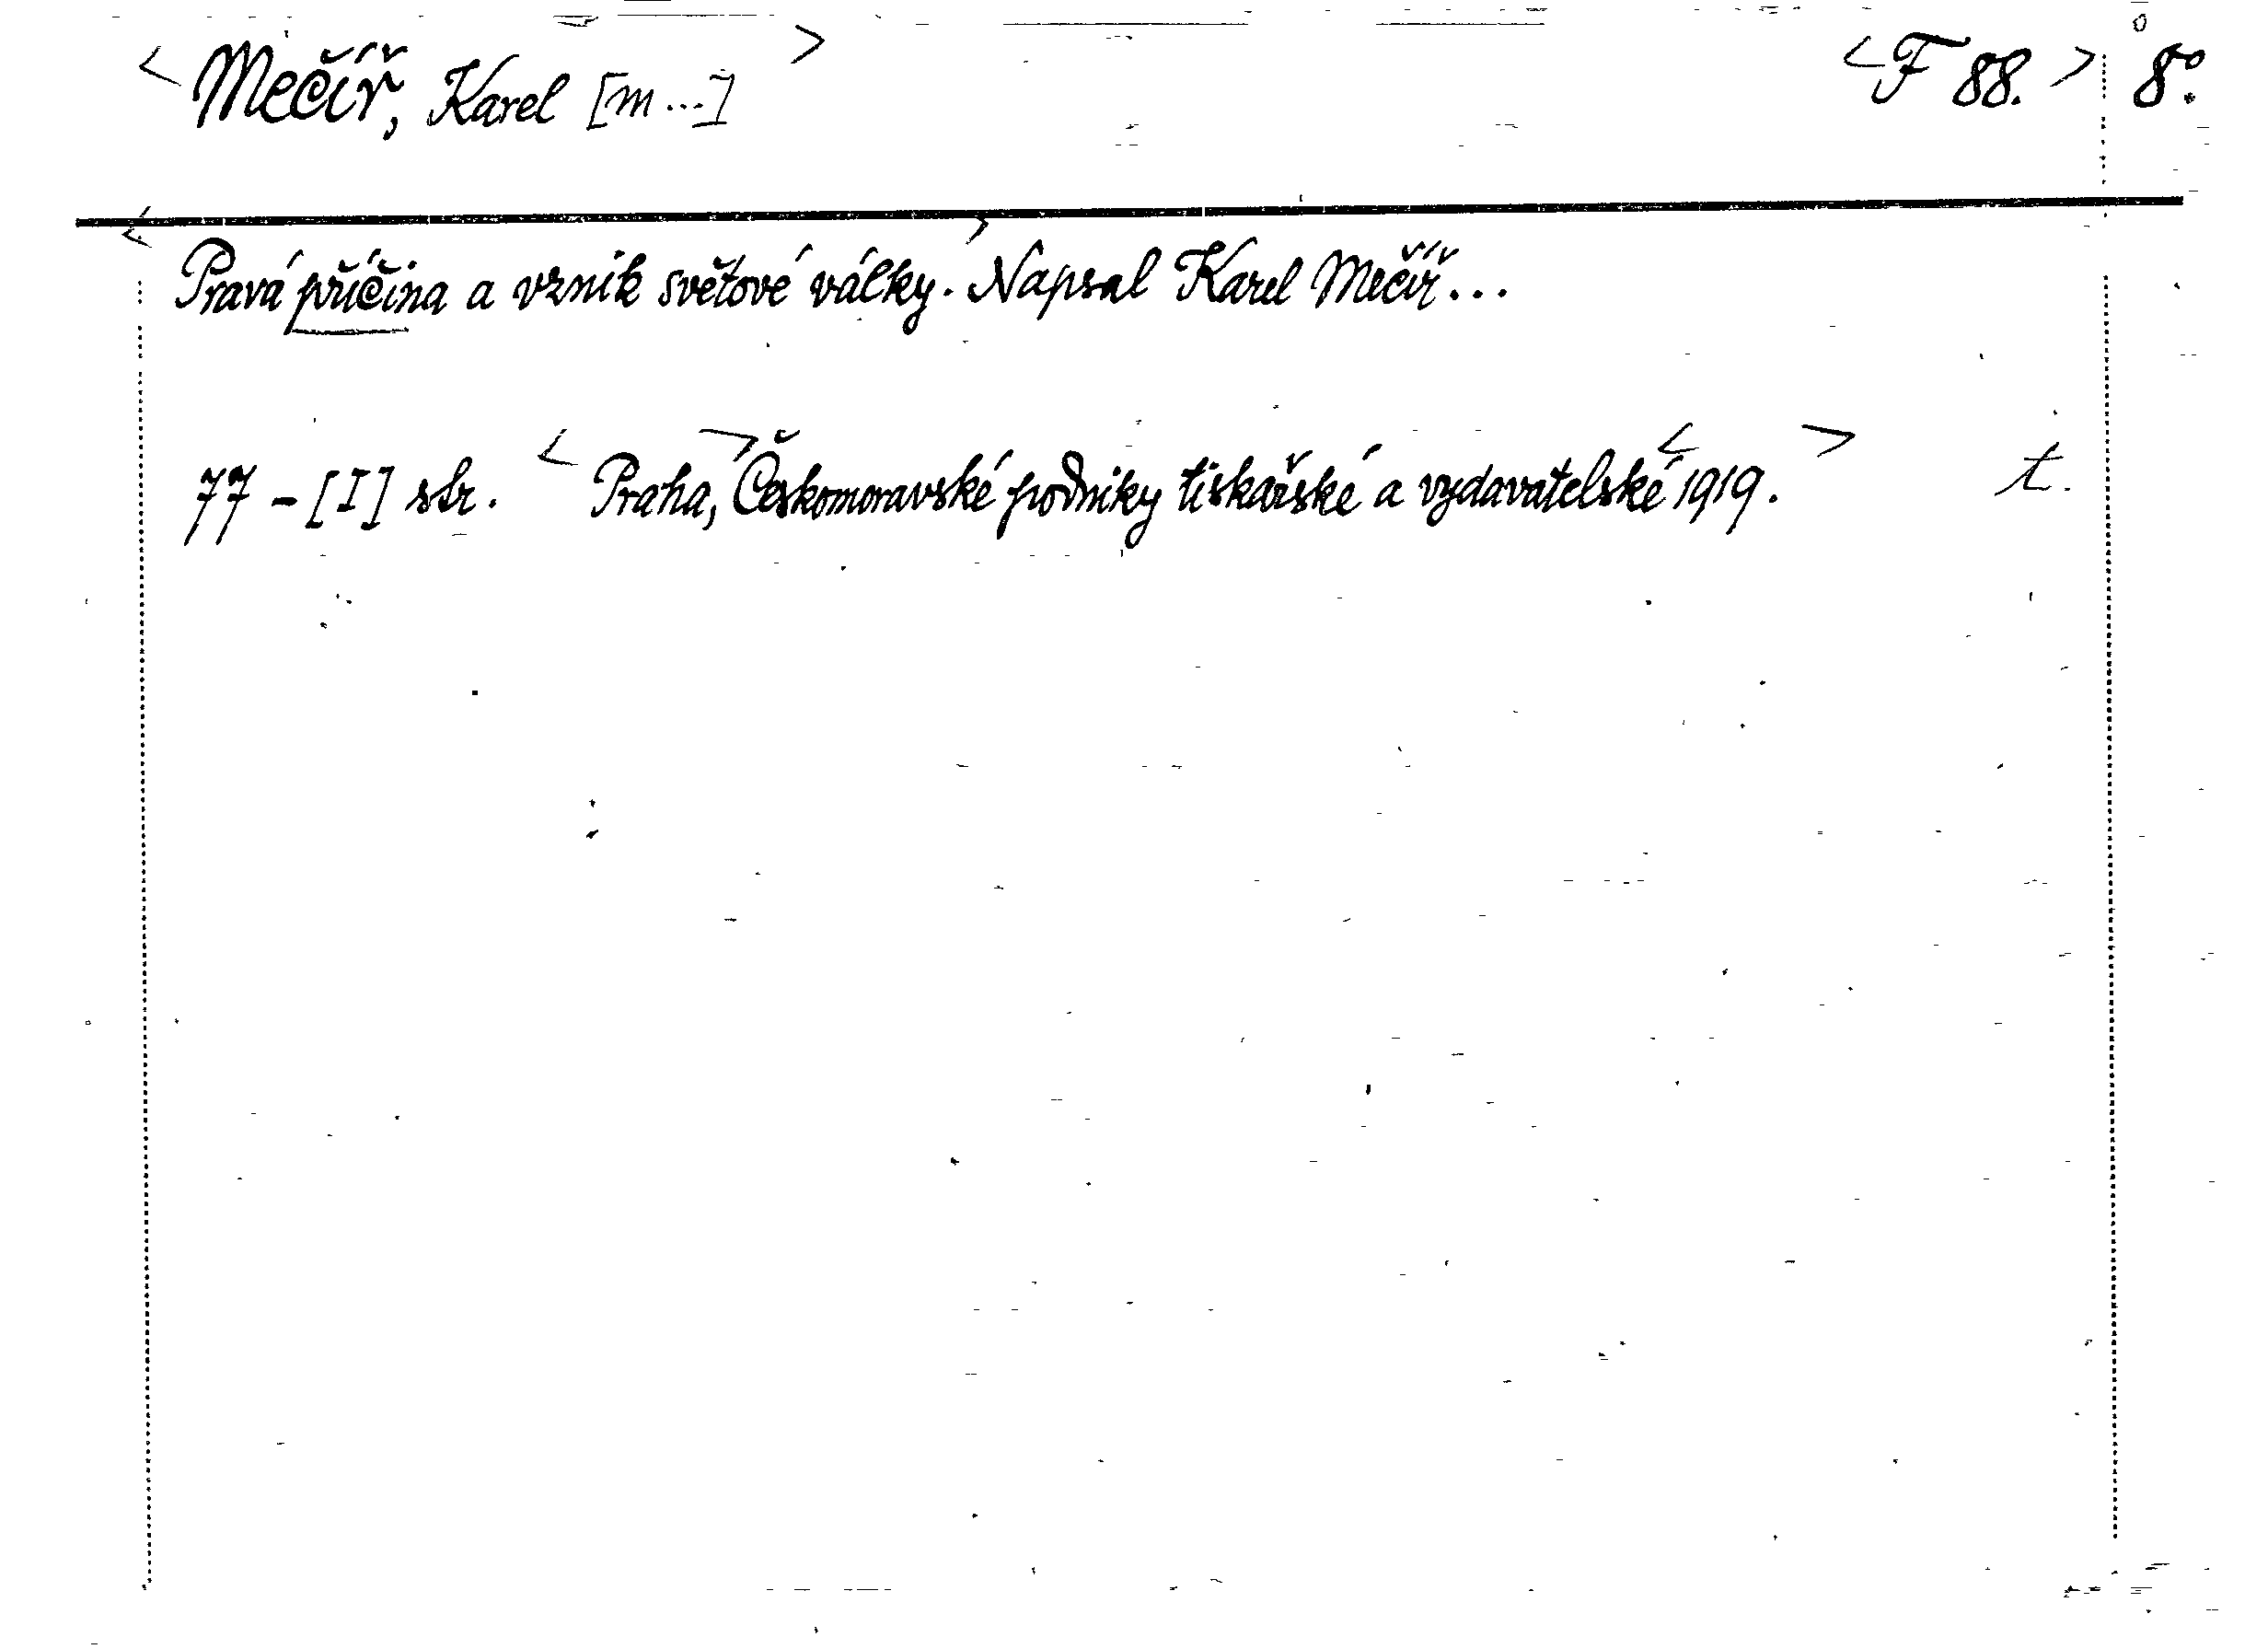 <Mečíř, Karel [m...]> <F 88.> 8°.
<Pravá příčina a vznik světové války.> Napsal Karel Mečíř...
77 - [I] str. <Praha,> Českomoravské podniky tiskařské a vydavatelské <1919.> t.